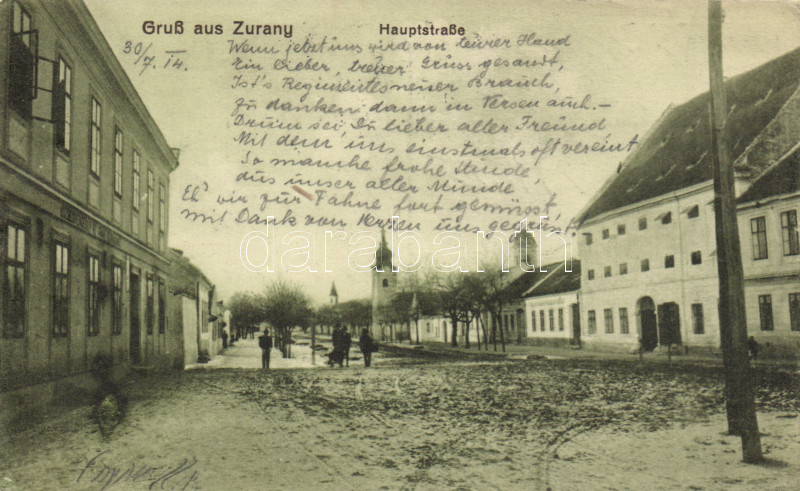 Gruß aus Zurany
Hauptstraße
30/7. 14.
Wenn jetzt uns wird von teurer Hand
Ein lieber, treuer Gruss gesandt,
Ist's Regimentes neuer Brauch,
Zu danken dann in Versen auch. -
Drum sei, Du lieber alter Freund
Mit dem uns einstmals oft vereint
So manche frohe Stunde,
aus unser aller Munde
Eh' wir zur Fahne fort gemüsst,
mit Dank von Herzen uns gegrüsst!
darabanth